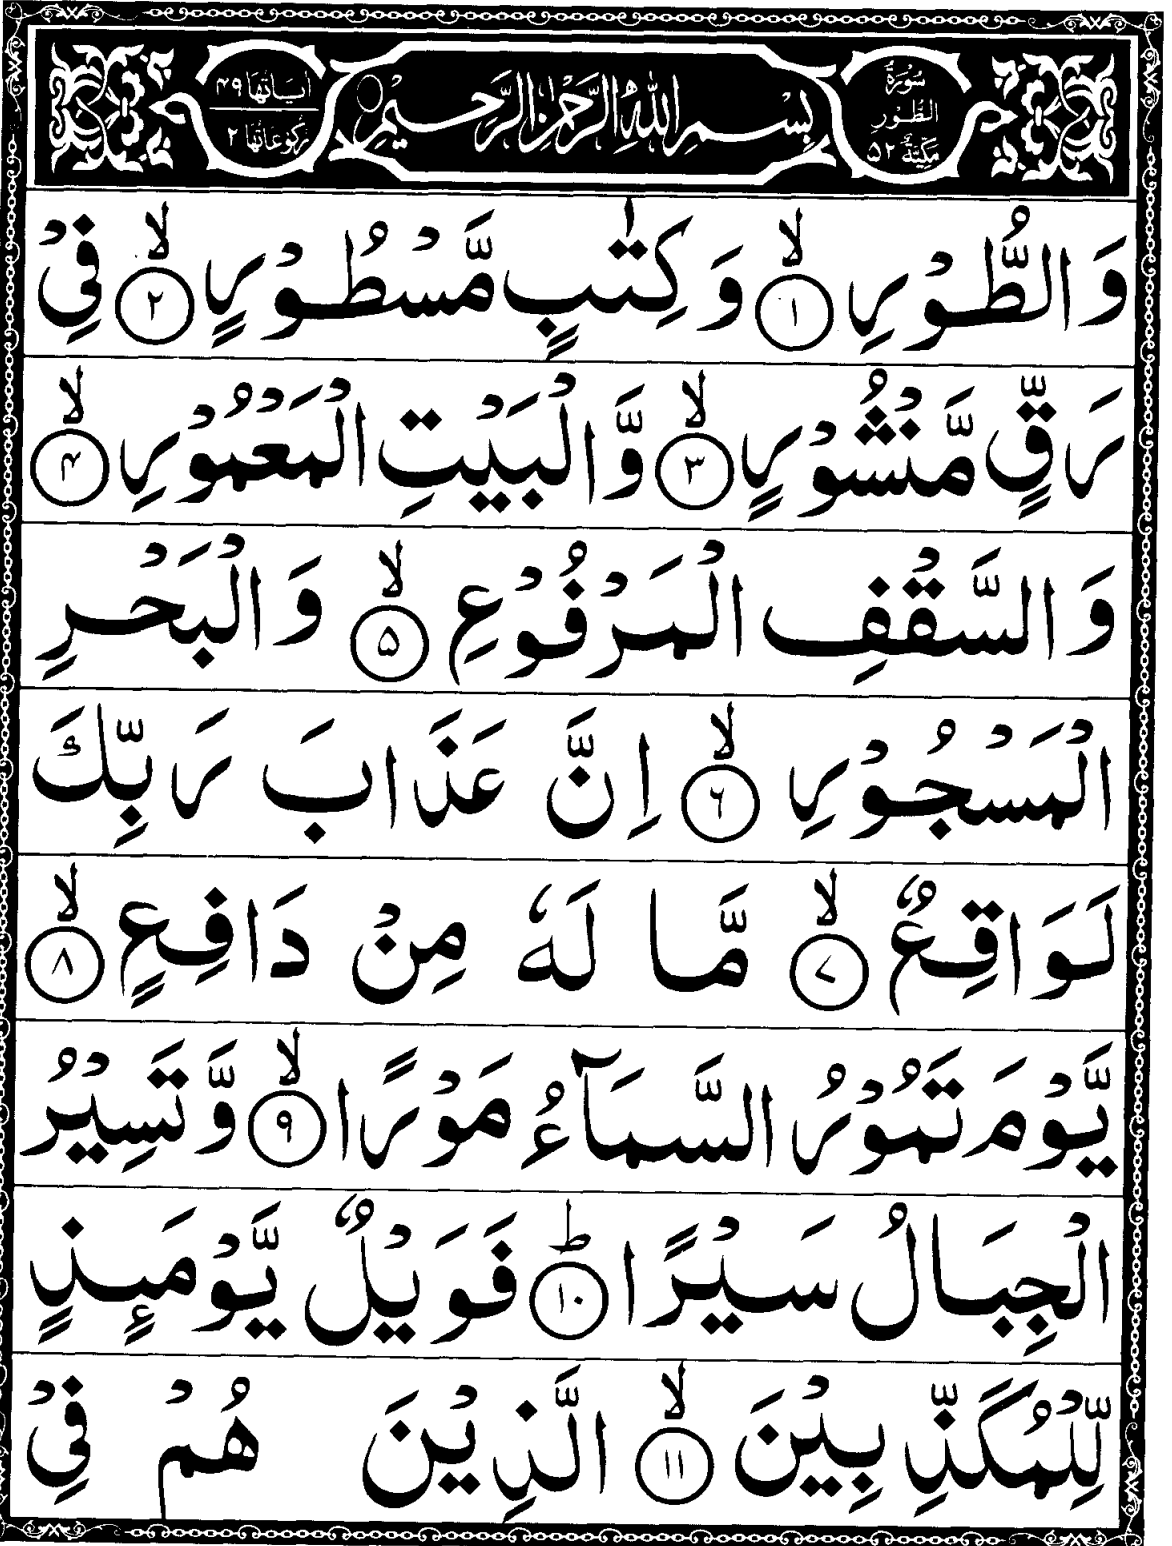 سُوْرَةُ الطُّوْرِ مَكِّيَّةٌ ٥٢
بِسْمِ اللّٰهِ الرَّحْمٰنِ الرَّحِيْمِ
اٰيَاتُهَا ٤٩
رُكُوْعَاتُهَا ٢
وَالطُّوْرِ ۙ﴿١﴾ وَكِتٰبٍ مَّسْطُوْرٍ ۙ﴿٢﴾ فِيْ
رَقٍّ مَّنْشُوْرٍ ۙ﴿٣﴾ وَّالْبَيْتِ الْمَعْمُوْرِ ۙ﴿٤﴾
وَالسَّقْفِ الْمَرْفُوْعِ ۙ﴿٥﴾ وَالْبَحْرِ
الْمَسْجُوْرِ ۙ﴿٦﴾ اِنَّ عَذَابَ رَبِّكَ
لَوَاقِعٌ ۙ﴿٧﴾ مَّا لَهٗ مِنْ دَافِعٍ ۙ﴿٨﴾
يَّوْمَ تَمُوْرُ السَّمَآءُ مَوْرًا ۙ﴿٩﴾ وَّتَسِيْرُ
الْجِبَالُ سَيْرًا ؕ﴿١٠﴾ فَوَيْلٌ يَّوْمَىِٕذٍ
لِّلْمُكَذِّبِيْنَ ۙ﴿١١﴾ الَّذِيْنَ هُمْ فِيْ